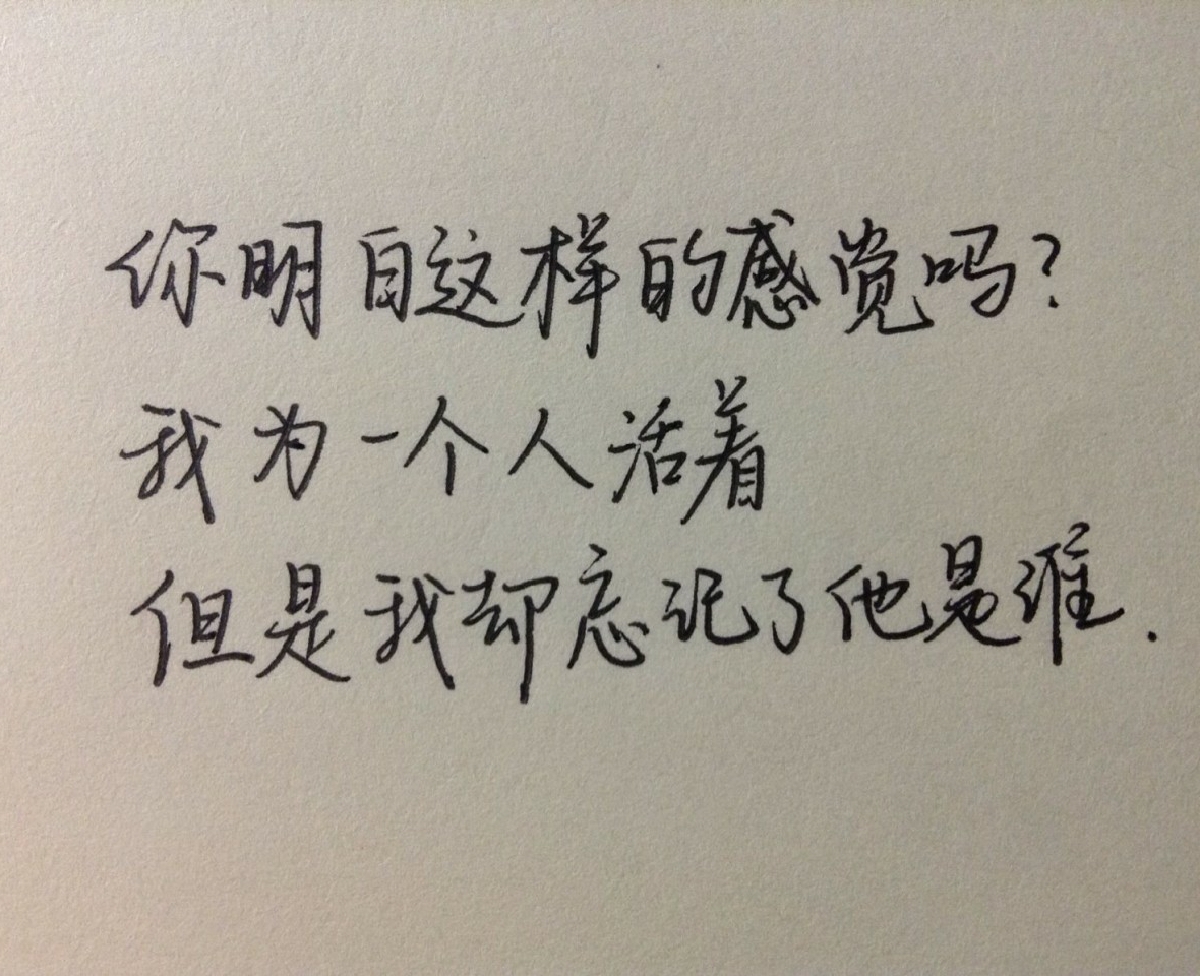 你明白这样的感觉吗?
我为一个人活着
但是我却忘记了他是谁.